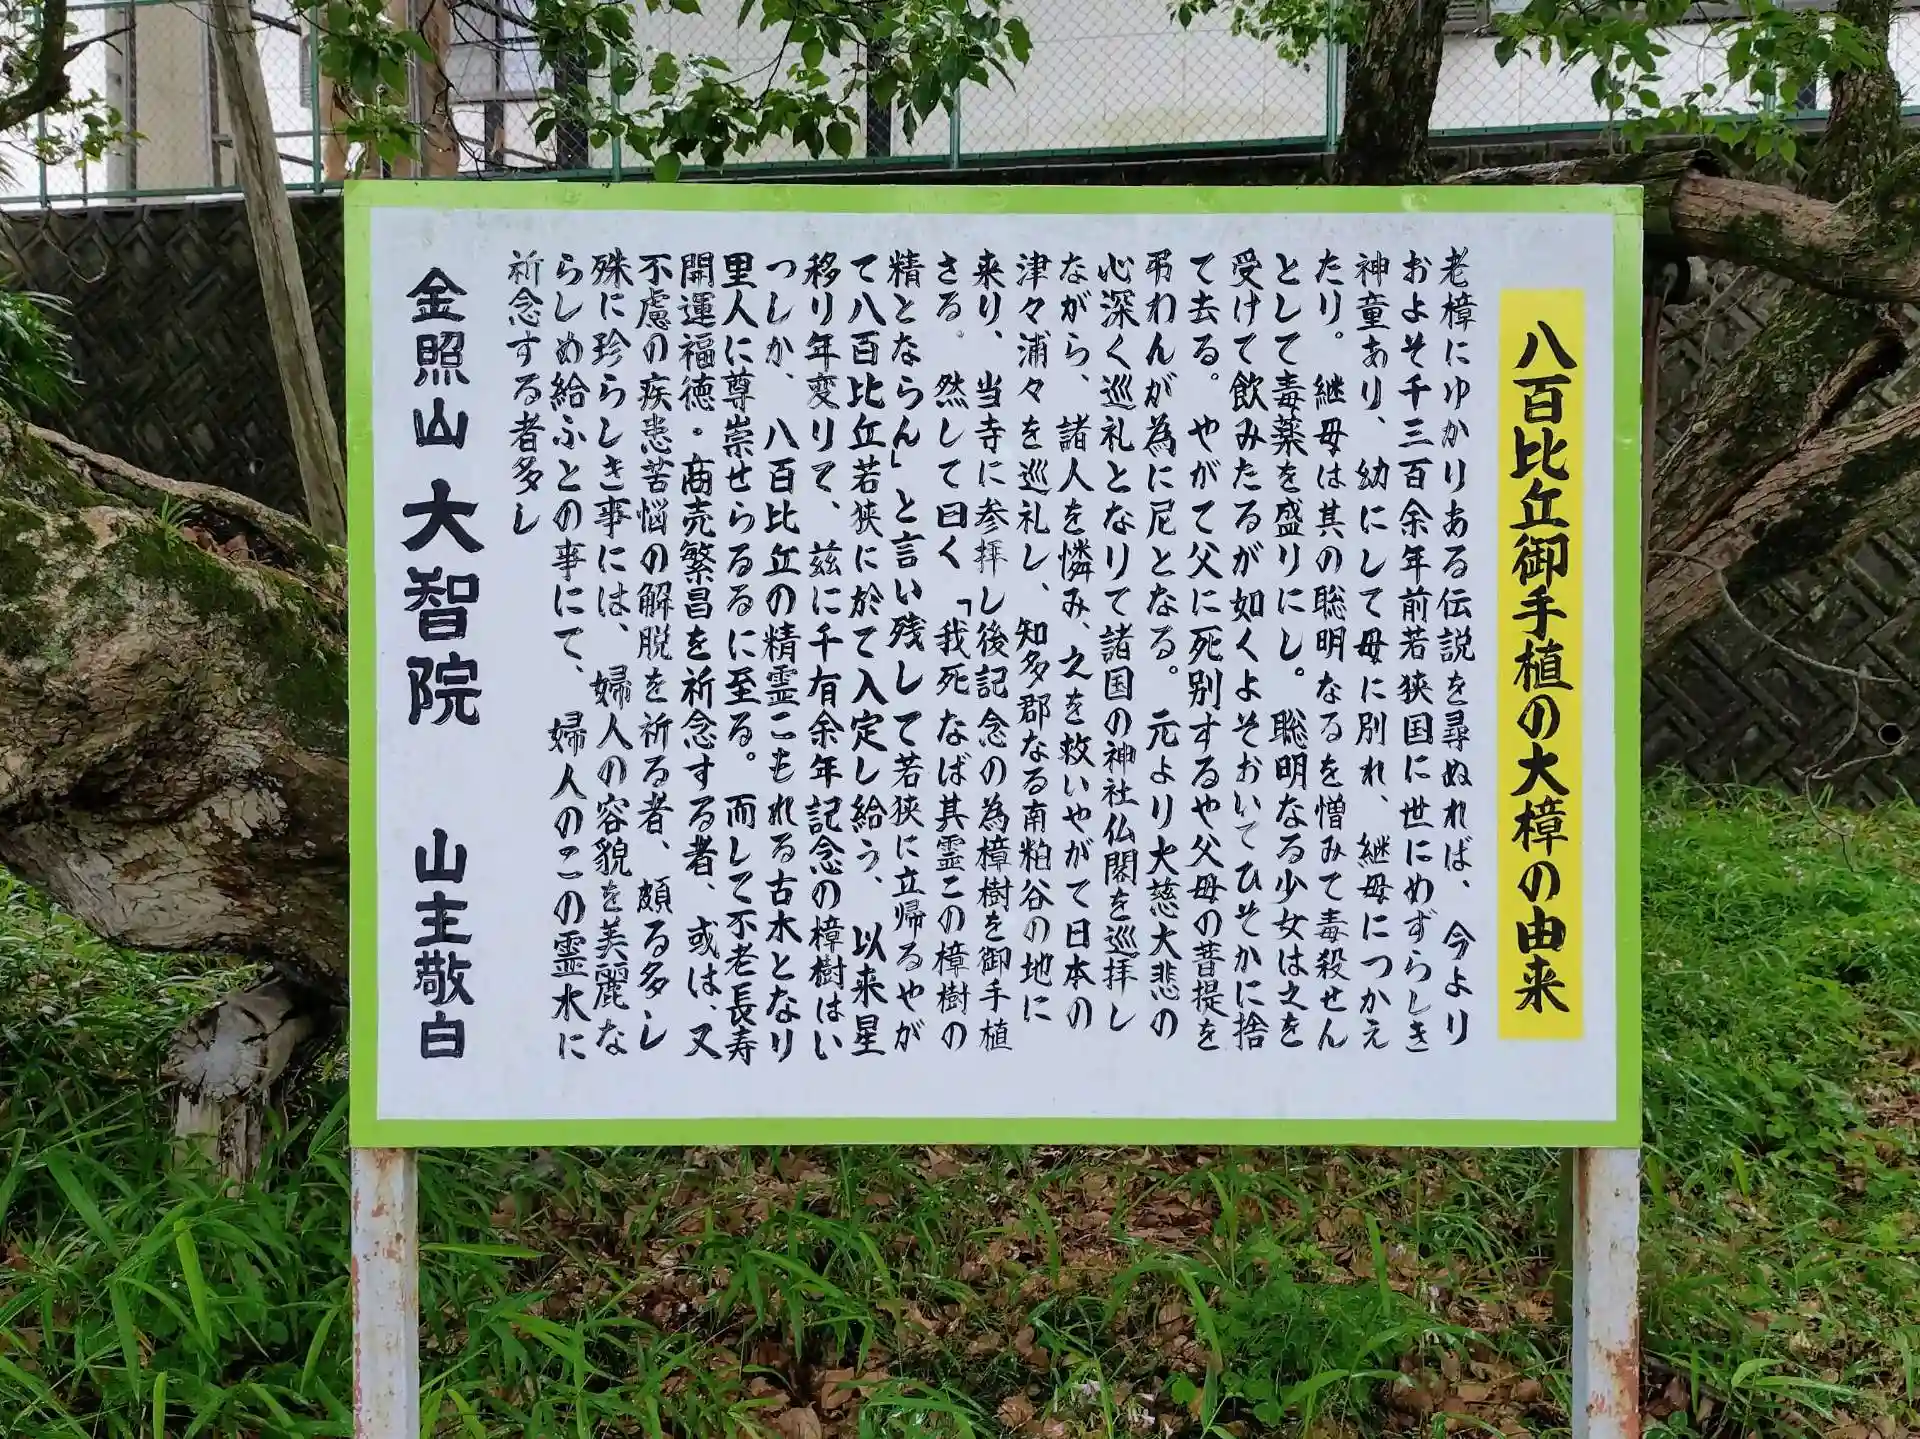 八百比丘御手植の大樟の由来
老樟にゆかりある伝説を尋ぬれば、今より
およそ千三百余年前若狭国に世にめずらしき
神童あり、幼にして母に別れ、継母につかえ
たり。継母は其の聡明なるを憎みて毒殺せん
として毒薬を盛りにし。聡明なる少女は之を
受けて飲みたるが如くよそおいてひそかに捨
て去る。やがて父に死別するや父母の菩提を
弔わんが為に尼となる。元より大慈大悲の
心深く巡礼となりて諸国の神社仏閣を巡拝し
ながら、諸人を憐み、之を救いやがて日本の
津々浦々を巡礼し、知多郡なる南粕谷の地に
来り、当寺に参拝し後記念の為樟樹を御手植
さる。然して曰く「我死なば其霊この樟樹の
精とならん」と言い残して若狭に立帰るやが
て八百比丘若狭に於て入定し給う、以来星
移り年変りて、茲に千有余年記念の樟樹はい
つしか、八百比丘の精霊こもれる古木となり
里人に尊崇せらるるに至る。而して不老長寿
開運福徳・商売繁昌を祈念する者、或は、又
不慮の疾患苦悩の解脱を祈る者、頗る多し
殊に珍らしき事には、婦人の容貌を美麗な
らしめ給ふとの事にて、婦人のこの霊木に
祈念する者多し
金照山 大智院 山主敬白